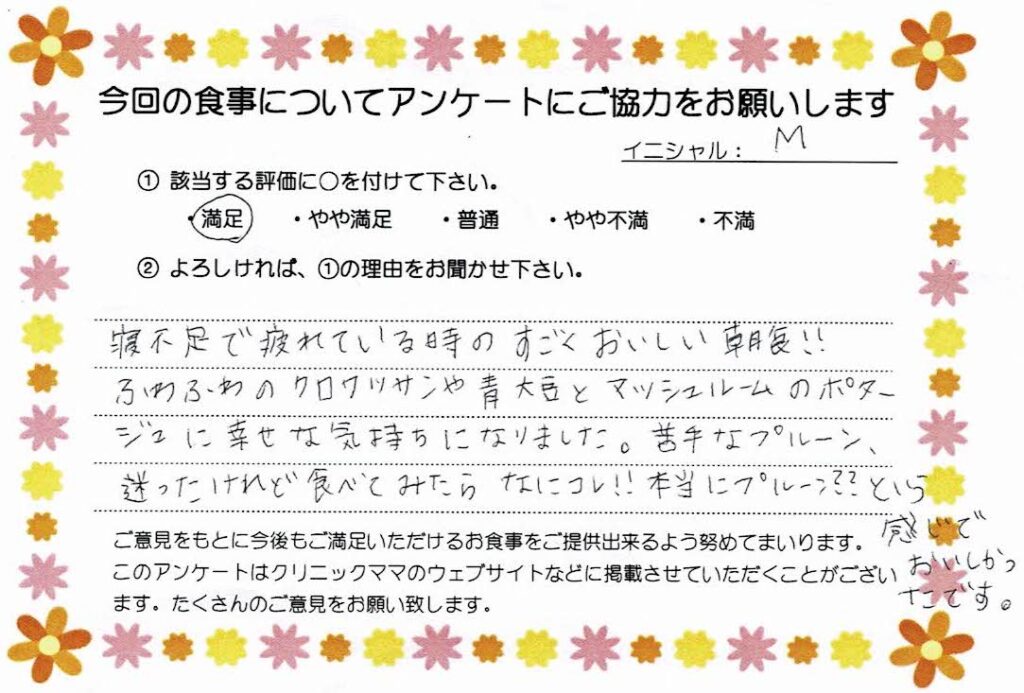 今回の食事についてアンケートにご協力をお願いします
イニシャル： M
① 該当する評価に○を付けて下さい。
・満足 ・やや満足 ・普通 ・やや不満 ・不満
② よろしければ、①の理由をお聞かせ下さい。
寝不足で疲れている時のすごくおいしい朝食!!
ふわふわのクロワッサンや青大豆とマッシュルームのポター
ジュに幸せな気持ちになりました。苦手なプルーン、
迷ったけれど食べてみたらなにコレ!!本当にプルーン??という
感じで
おいしかっ
たです。
ご意見をもとに今後もご満足いただけるお食事をご提供出来るよう努めてまいります。
このアンケートはクリニックママのウェブサイトなどに掲載させていただくことがござい
ます。たくさんのご意見をお願い致します。